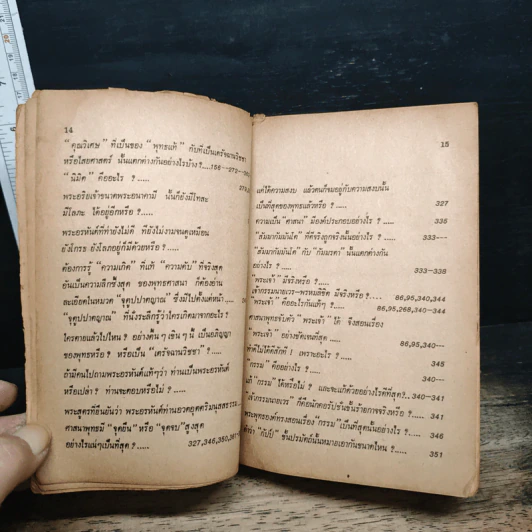 14
" คุณวิเศษ " ที่เป็นของ " พุทธแท้ " กับที่เป็นเดรัจฉานวิชชา
หรือไสยศาสตร์ นั้นแตกต่างกันอย่างไรบ้าง ?....156--272--
" นิมิต " คืออะไร ?
พระอริยเจ้าขนาดพระอนาคามี นั้นก็ยังมีโทสะ
มีโลภะ ได้อยู่อีกหรือ ?.....
พระอรหันต์ที่ทำยังไม่ดี ที่ยังไม่งามจนดูเหมือน
ยังโกรธ ยังโลภอยู่ก็มีด้วยหรือ ?.....
ต้องการรู้ "ความเกิด" ที่แท้ "ความดับ" ที่จริงสุด
อันเป็นความลึกซึ้งสุด ของพุทธศาสนา ก็ต้องอ่าน
ละเอียดในหมวด "จุตูปปาตญาณ" ซึ่งมีไปตั้งแต่หน้า
"จุตูปปาตญาณ" ที่นั่งระลึกรู้ว่าใครเกิดมาจากอะไร ?
ใครตายแล้วไปไหน ? อย่างตื้น ๆ เขิน ๆ นี้ เป็นอภิญญา
ของพุทธหรือ ? หรือเป็น "เดรัจฉานวิชชา" ?.....
ถ้ามีคนไปถามพระอรหันต์แท้ๆว่า ท่านเป็นพระอรหันต์
หรือเปล่า ? ท่านจะตอบหรือไม่ ?.....
พระสูตรที่ยืนยันว่า พระอรหันต์ท่านอวดอุตตริมนุสสธรรม
ศาสนาพุทธมี "จุดยืน" หรือ "จุดจบ" สูงสุด
อย่างไรแน่ๆเป็นที่สุด ?.....	327,346,350,361
15
แค่ได้ความสงบ แล้วตนก็จมอยู่กับความสงบนั้น
เป็นที่สุดของพุทธแล้วหรือ ?.....	327
ความเป็น "ศาสนา" มีองค์ประกอบอย่างไร ?.....	335
"สัมมากัมมันโต" ที่ดีจริงถูกจริงนั้นอย่างไร ?.....	333---
"สัมมากัมมันโต" กับ "กัมมรตา" นั้นแตกต่างกัน
อย่างไร ?.....	333--338
"พระเจ้า" มีจริงหรือ ?.....
เจ้ากรรมนายเวร--พรหมลิขิต มีจริงหรือ ?....	86,95,340,344
"พระเจ้า" คืออะไรกันแท้ๆ ?.....	86,95,268,340--344
ศาสนาพุทธจับตัว "พระเจ้า" ได้ จึงสอนเรื่อง
"พระเจ้า" อย่างชัดเจนที่สุด .....	86,95,340---
ทำดีไม่ได้ดีสักที ! เพราะอะไร ?.....	345
กรรม " คืออย่างไร ?.....	340---
แก้ "กรรม" ได้หรือไม่ ? และจะแก้ด้วยอย่างไรดีที่สุด?..	340--341
"เจ้ากรรมนายเวร" ก็คือนักคอรัปชั่นชั้นร้ายกาจจริงหรือ ?...	341
พระพุทธองค์ทรงสอนเรื่อง "กรรม" เป็นที่สุดนั้นอย่างไร ?....	346
คำว่า "กัปป์" ชั้นปรมัตถ์นั้นหมายเอากันขนาดไหน ?.....	351